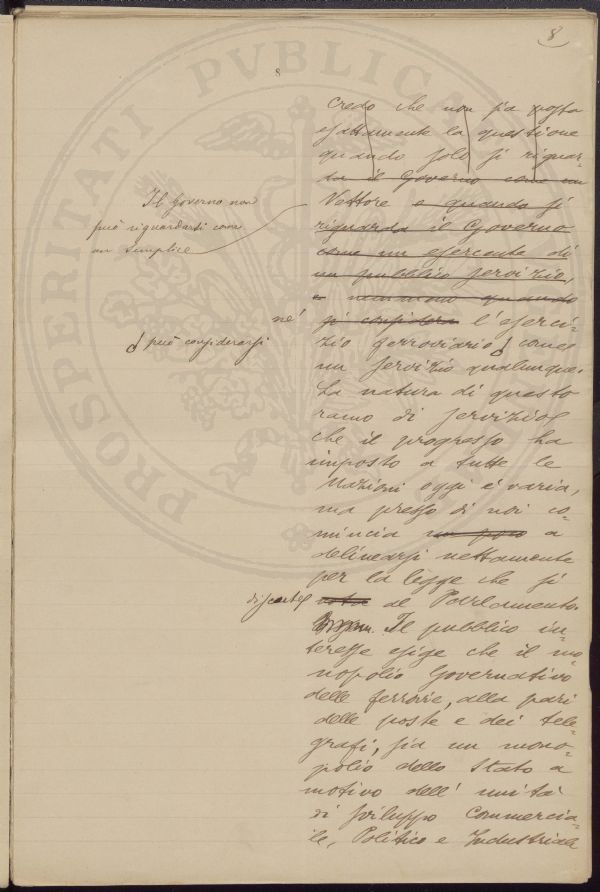 8
8
PROSPERITATI PVBLICAE
Credo che non sia posta
esattamente la questione
quando solo si riguar-
da il Governo come un
Vettore e quando si
riguarda il Governo
come un esercente di
un pubblico servizio,
e nemmeno quando
si considera l'eserci-
zio ferroviario come
un servizio qualunque.
La natura di questo
ramo di servizio
che il progresso ha
imposto a tutte le
Nazioni oggi è varia,
ma presso di noi co-
mincia un poco a
delinearsi nettamente
per la legge che si
vota al Parlamento.
Il pubblico in-
teresse esige che il mo-
nopolio Governativo
delle ferrovie, alla pari
delle poste e dei tele-
grafi, sia un mono-
polio dello Stato a
motivo dell'unità
di sviluppo Commercia-
le, Politico e Industriale
Il Governo non
può riguardarsi come
un semplice
nè
può considerarsi
discute